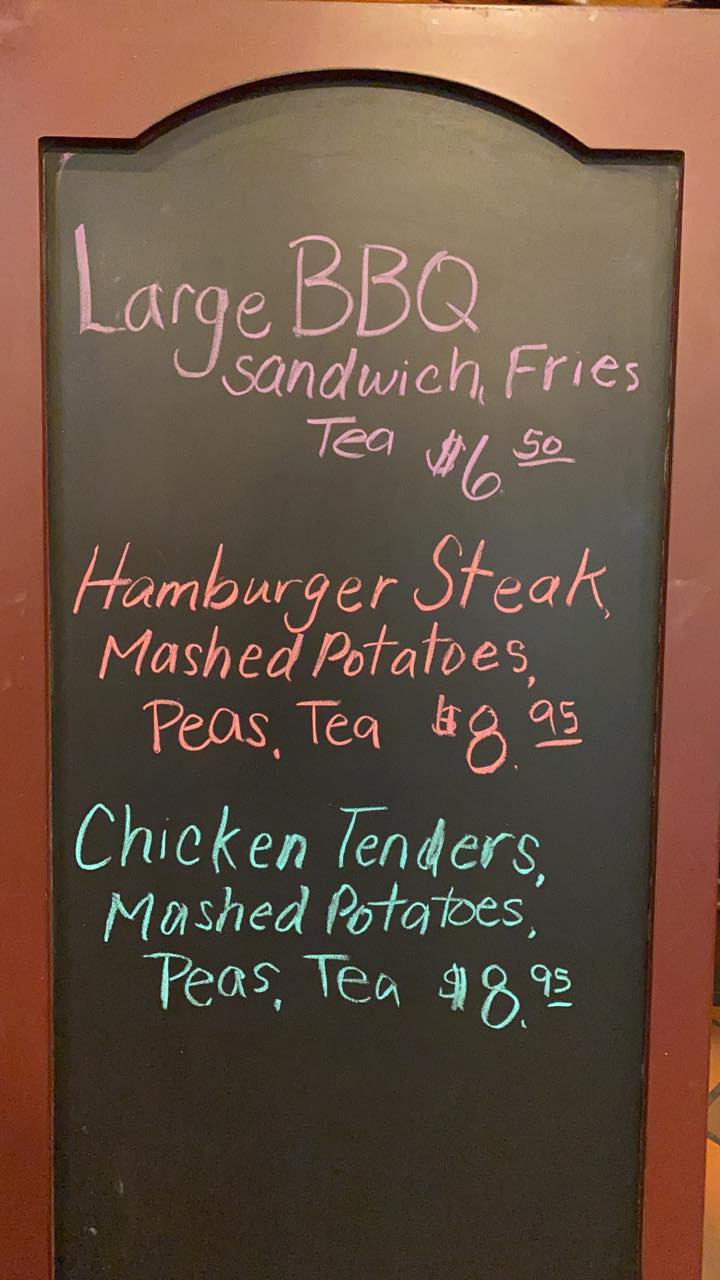 Large BBQ
Sandwich, Fries
Tea $6.50
Hamburger Steak,
Mashed Potatoes,
Peas, Tea $8.95
Chicken Tenders,
Mashed Potatoes,
Peas, Tea $8.95